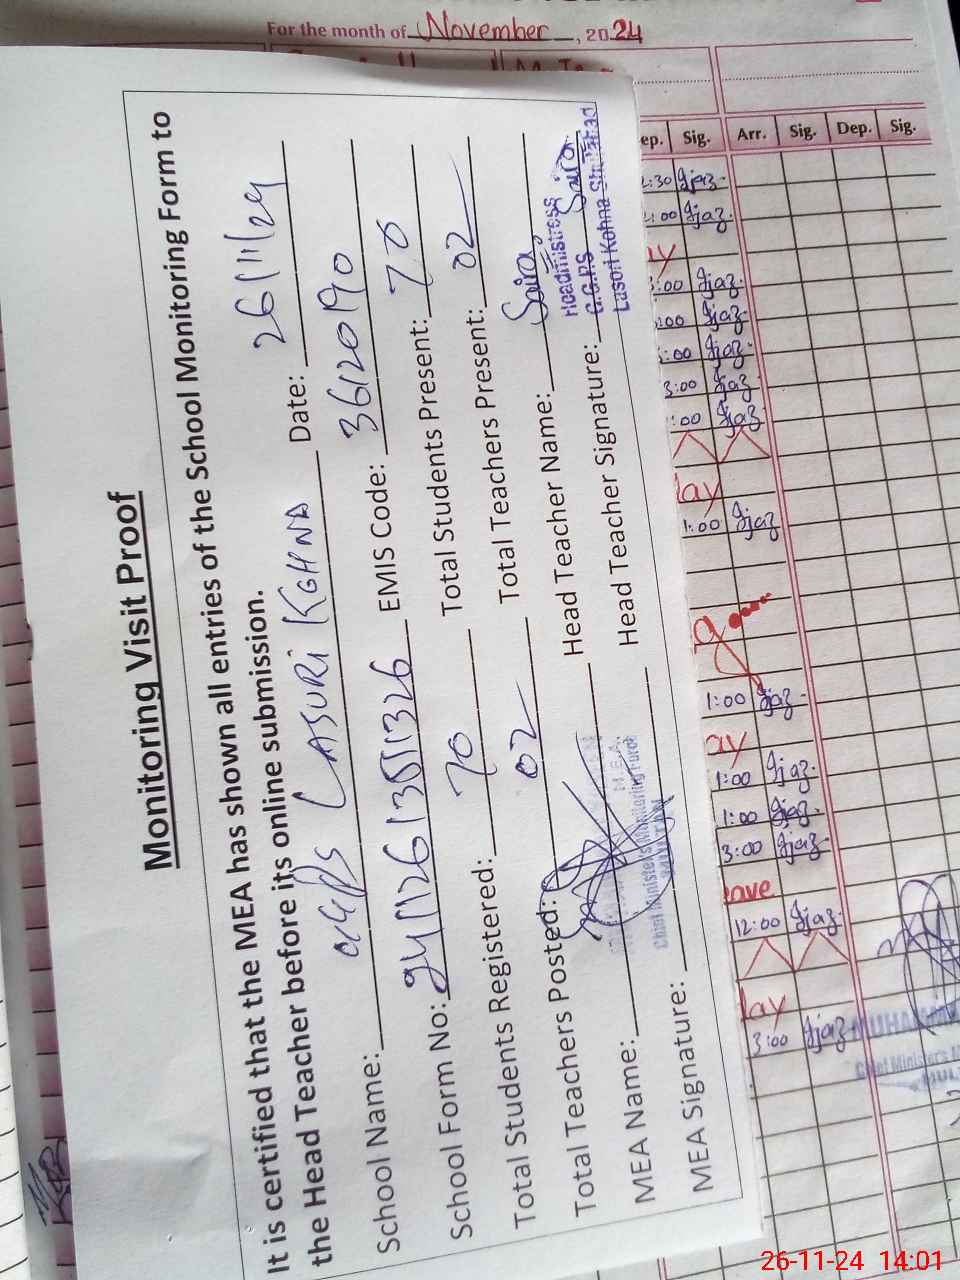 For the month of November, 2024
Monitoring Visit Proof
It is certified that the MEA has shown all entries of the School Monitoring Form to
the Head Teacher before its online submission.
School Name: LASURI KOHNA Date: 26/11/24
School Form No: EMIS Code: 36120190
Total Students Registered: 70 Total Students Present: 70
Total Teachers Posted: 02 Total Teachers Present: 02
MEA Name: Head Teacher Name: Saira
MEA Signature: Head Teacher Signature: Saira
Headmistress
G.G.P.S
Lasori Kohna
M.E.A.
Chief Minister's Monitoring Force
MULTAN
ep. Sig. Arr. Sig. Dep. Sig.
:30 Ijaz
:00 Ijaz
ay
:00 Ijaz
:00 Ijaz
:00 Ijaz
3:00 Ijaz
:00 Ijaz
lay
1:00 Ijaz
1:00 Ijaz
ay
1:00 Ijaz
1:00 Ijaz
3:00 Ijaz
eave
12:00 Ijaz
lay
3:00 Ijaz
MUHAMMA
Chief Minister's M
MULT
26-11-24 14:01